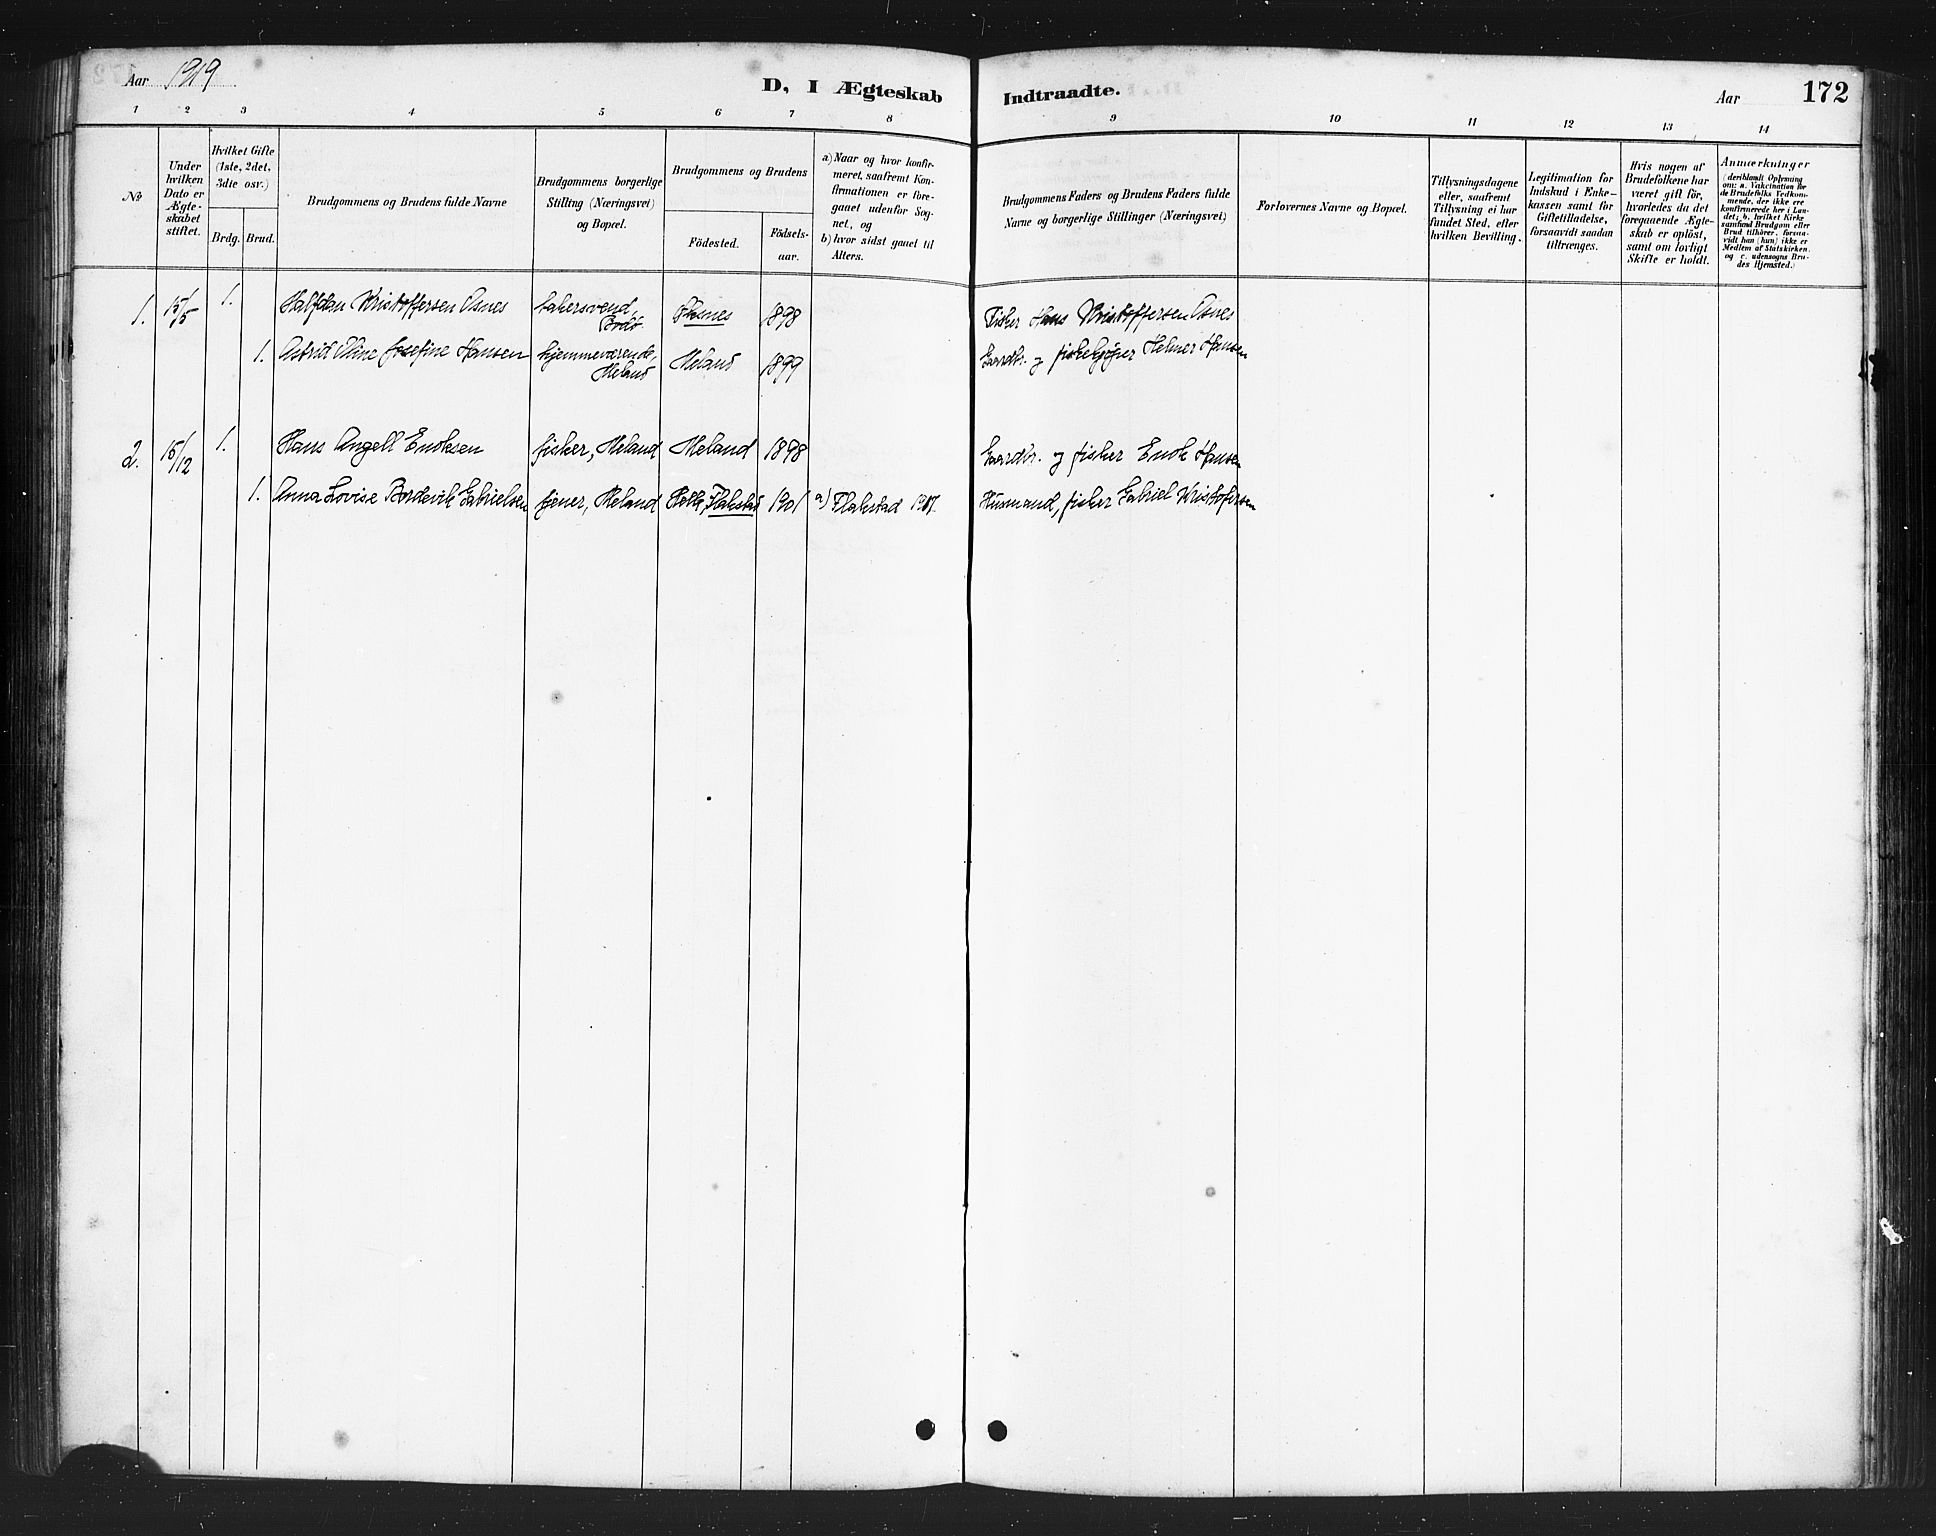 Aar 1919
D, I Ægteskab Indtraadte.
Aar
172
1 2 3 4 5 6 7 8 9 10 11 12 13 14
No
Under
hvilken
Dato er
Ægte-
skabet
stiftet.
Hvilket Gifte
(1ste, 2det,
3die osv.)
Brdg.
Brud.
Brudgommens og Brudens fulde Navne
Brudgommens borgerlige
Stilling (Næringsvei)
og Bopæl.
Brudgommens og Brudens
Födested.
Födsels-
aar.
a) Naar og hvor konfir-
meret, saafremt Kon-
firmationen er fore-
gaaet udenfor Sog-
net, og
b) hvor sidst gaaet til
Alters.
Brudgommens Faders og Brudens Faders fulde
Navne og borgerlige Stillinger (Næringsvei)
Forlovernes Navne og Bopæl.
Tillysningsdagene
eller, saafremt
Tillysning ei har
fundet Sted, efter
hvilken Bevilling.
Legitimation for
Indskud i Enke-
kassen samt for
Giftetilladelse,
forsaavidt saadan
tiltrænges.
Hvis nogen af
Brudefolkene har
været gift för,
hvorledes da det
foregaaende Ægte-
skab er oplöst,
samt om lovligt
Skifte er holdt.
Anmærkninger
(deriblandt Oplysning
om: a. Vakcination for
de Brudefolks Vedkom-
mende, der ikke ere
konfirmerede her i Lan-
det; b. hvilket Kirke
samfund Brudgom eller
Brud tilhörer, forsaa-
vidt han (hun) ikke er
Medlem af Statskirken.
og c. udensogns Bru-
des Hjemsted.)
1. 15/5 1. Halfdan Kristoffersen Asnes bakersvend, Bodø 1898 Fisker Hans Kristoffersen Asnes
1. Astrid Oline Josefine Hansen hjemmeværende, Meland Meland 1899 Gaardbr. og fiskekjøper Helmer Hansen
2. 15/12 1. Hans Angell Enoksen fisker, Meland Meland 1898 Gaardbr. og fisker Enok Hansen
1. Anna Lovise Bordevik Gabrielsen tjener, Meland Flakstad 1901 a) Flakstad Husmand, fisker Gabriel Kristofersen